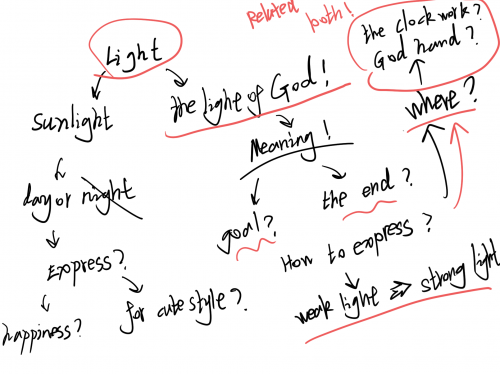 Related both!
the clockwork?
God hand?
Light
Sunlight
the light of God!
where?
Meaning!
day or night
the end?
goal?
How to express?
Express?
weak light => strong light
happiness?
for cute style?